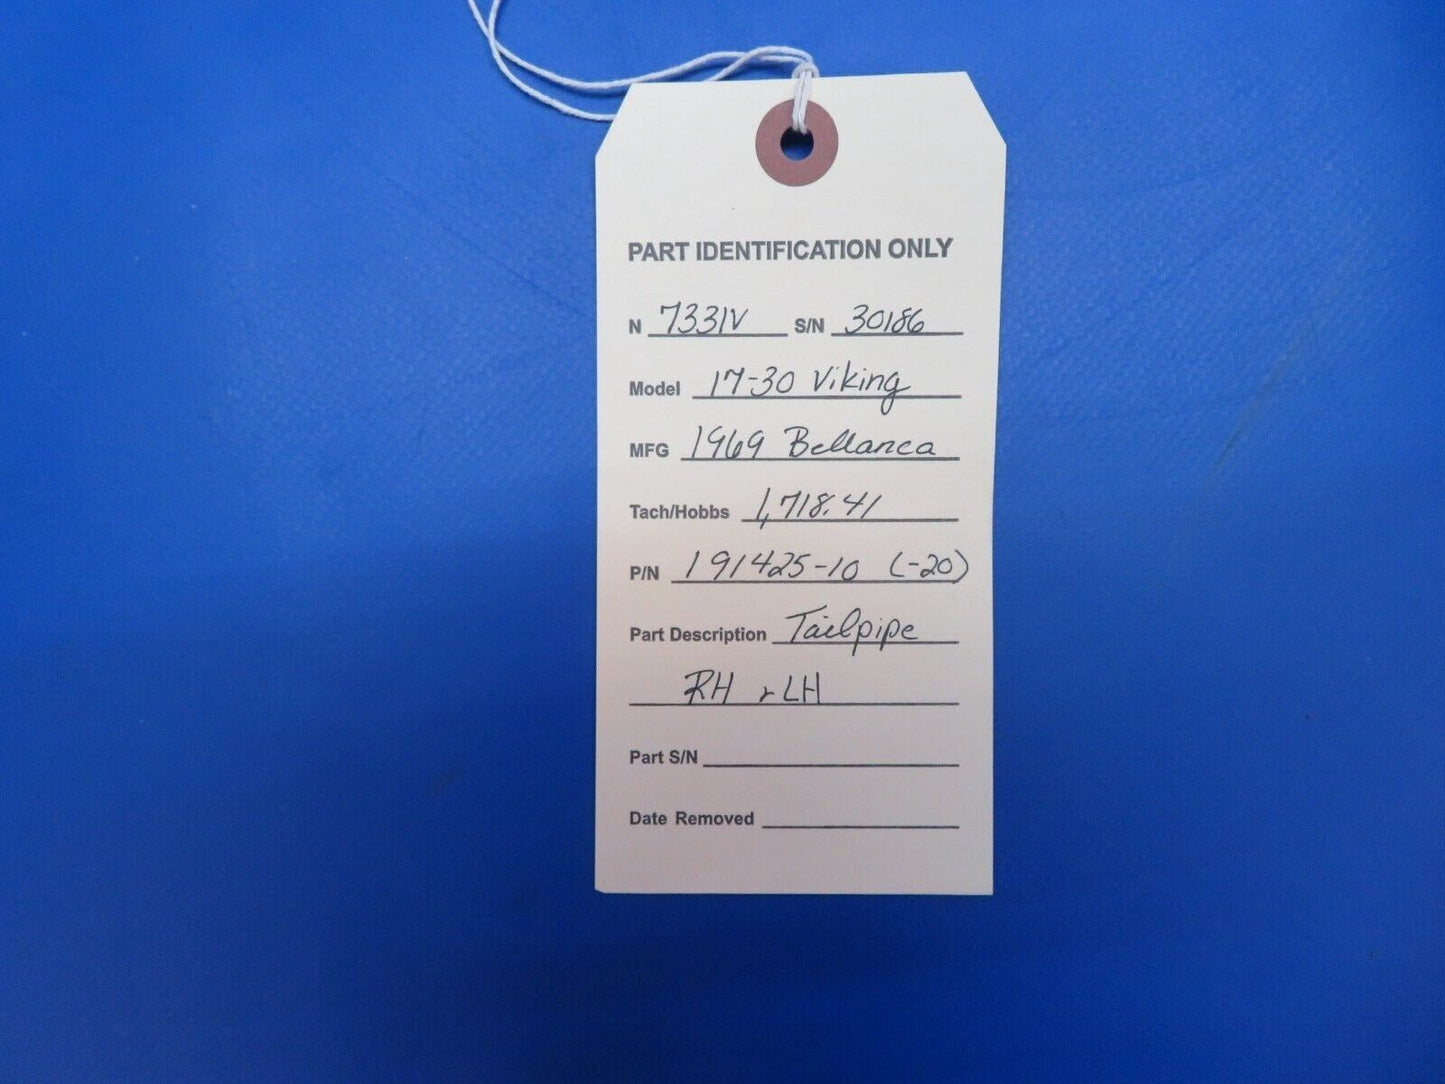 PART IDENTIFICATION ONLY
N 7331V S/N 30186
Model 17-30 Viking
MFG 1969 Bellanca
Tach/Hobbs 1,718.41
P/N 191425-10 (-20)
Part Description Tailpipe
RH & LH
Part S/N
Date Removed